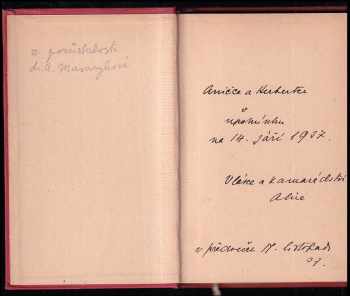 z pozůstalosti
dr. A. Masarykové
Aničce a Herbertce
v
upomínku
na 14. září 1937.
a kamarádství
Alice
v předvečer 17. listopadu
37.